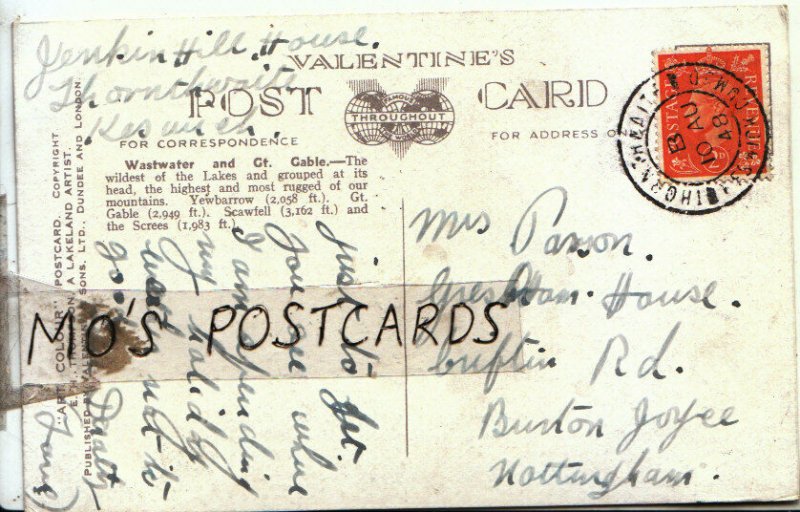 Jenkin Hill House.
Thornthwaite
VALENTINE'S
POST CARD
FAMOUS
THROUGHOUT
FOR CORRESPONDENCE
FOR ADDRESS O
Wastwater and Gt. Gable.—The
wildest of the Lakes and grouped at its
head, the highest and most rugged of our
mountains. Yewbarrow (2,058 ft.). Gt.
Gable (2,949 ft.). Scawfell (3,162 ft.) and
the Screes (1,983 ft.)
"ART COLOUR" POSTCARD. COPYRIGHT
A LAKELAND ARTIST.
PUBLISHED BY SONS. LTD., DUNDEE AND LONDON.
just to
you are where
I am spending
my holiday
not to
MO'S POSTCARDS
Mrs
House.
Rd.
Burton Joyce
Nottingham.
POSTAGE
REVENUE
B
10 AU
48